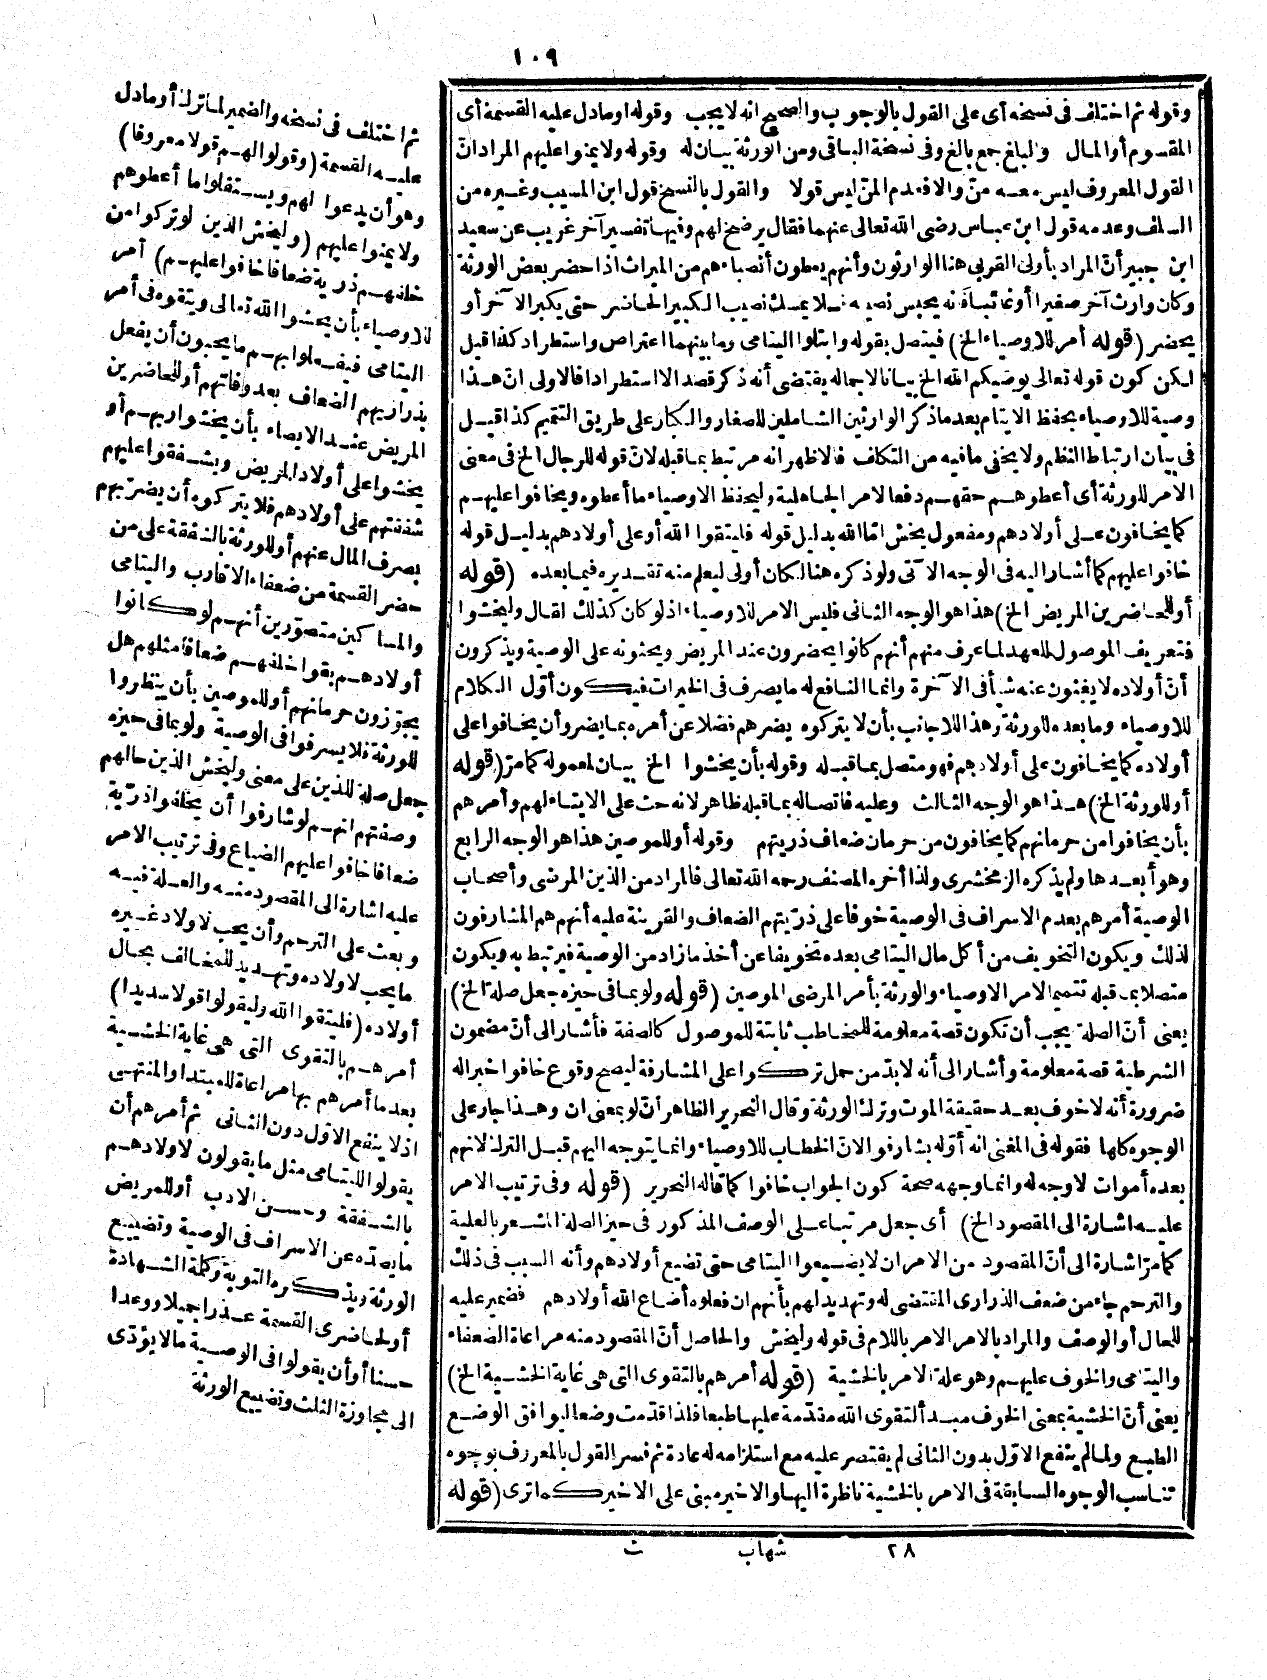 ١٠٩
وقوله ثم اختلف فى نسخه أى على القول بالوجوب والصحيح انه لا يجب وقوله او ما دل عليه القسمة أى
المقسوم أو المال والبلغ جمع بالغ وفى نسخة الباقى ومن الورثة بيان له وقوله ولا يمنوا عليهم المراد انّ
القول المعروف ليس معه منّ والا فعدم المنّ ليس قولا والقول بالنسخ قول ابن المسيب وغيره من
السلف وعدمه قول ابن عباس رضى الله تعالى عنهما فقال يرضخ لهم وفيها تفسير آخر غريب عن سعيد
ابن جبير أنّ المراد بأولى القربى هنا الوارثون وأنهم يعطون أنصباءهم من الميراث اذا حضر بعض الورثة
وكان وارث آخر صغيرا أو غائبا فانه يحبس نصيبه فلا يمسك نصيب الكبير الحاضر حتى يكبر الآخر أو
يحضر (قوله أمر للاوصياء الخ) فيتصل بقوله وابتلوا اليتامى وما بينهما اعتراض واستطراد كذا قيل
لكن كون قوله تعالى يوصيكم الله الخ بيانا لاجماله يقتضى أنه ذكر قصدا لا استطرادا فالاولى انّ هذا
وصية للاوصياء بحفظ الايتام بعد ما ذكر الوارثين الشاملين للصغار والكبار على طريق التتميم كذا قيل
فى بيان ارتباط النظم ولا يخفى ما فيه من التكلف فالاظهر انه مرتبط بما قبله لانّ قوله للرجال الخ فى معنى
الامر للورثة أى أعطوهم حقهم دفعا لامر الجاهلية وليحفظ الاوصياء ما أعطوه ويخافوا عليهم
كما يخافون على أولادهم ومفعول يخش امّا الله بدليل قوله فليتقوا الله أو على أولادهم بدليل قوله
خافوا عليهم كما أشار اليه فى الوجه الآتى ولو ذكره هنا لكان أولى ليعلم منه تقديره فيما بعده (قوله
أو للحاضرين المريض الخ) هذا هو الوجه الثانى فليس الامر للاوصياء اذ لو كان كذلك لقال وليخشوا
فتعريف الموصول للعهد لما عرف منهم أنهم كانوا يحضرون عند المريض ويحثونه على الوصية ويذكرون
أنّ أولاده لا يغنون عنه شيأ فى الآخرة وانما النافع له ما يصرف فى الخيرات فيكون أوّل الكلام
للاوصياء وما بعده للورثة وهذا للاجانب بأن لا يتركوه يضرهم فضلا عن أمره بما يضر وأن يخافوا على
أولاده كما يخافون على أولادهم فهو متصل بما قبله وقوله بأن يخشوا الخ بيان لمعموله كما مرّ (قوله
أو للورثة الخ) هذا هو الوجه الثالث وعليه فاتصاله بما قبله ظاهر لانه حث على الايتاء لهم وأمرهم
بأن يخافوا من حرمانهم كما يخافون من حرمان ضعاف ذريتهم وقوله أو للموصين هذا هو الوجه الرابع
وهو أبعدها ولم يذكره الزمخشرى ولذا أخره المصنف رحمه الله تعالى فالمراد من الذين المرضى وأصحاب
الوصية أمرهم بعدم الاسراف فى الوصية خوفا على ذرّيتهم الضعاف والقرينة عليه أنهم هم المشارفون
لذلك ويكون التخويف من أكل مال اليتامى بعده تخويفا عن أخذ ما زاد من الوصية فيرتبط به ويكون
متصلا بما قبله تتميما لامر الاوصياء والورثة بأمر المرضى الموصين (قوله ولو بما فى حيزه جعل صلة الخ)
يعنى أنّ الصلة يجب أن تكون قصة معلومة للمخاطب ثابتة للموصول كالصفة فأشار الى أنّ مضمون
الشرطية قصة معلومة وأشار الى أنه لا بدّ من حمل تركوا على المشارفة ليصح وقوع خافوا خبرا له
ضرورة أنه لا خوف بعد حقيقة الموت وترك الورثة وقال النحرير الظاهر أنّ لو بمعنى ان وهذا جار على
الوجوه كلها فقوله فى المغنى انه أوّله بشارفوا لانّ الخطاب للاوصياء وانما يتوجه اليهم قبل الترك لانهم
بعده أموات لا وجه له وانما وجهه صحة كون الجواب خافوا كما قاله النحرير (قوله وفى ترتيب الامر
عليه اشارة الى المقصود الخ) أى جعل مرتبا على الوصف المذكور فى حيز الصلة المشعر بالعلية
كما مرّ اشارة الى أنّ المقصود من الامر ان لا يضيعوا اليتامى حتى تضيع أولادهم وأنه السبب فى ذلك
والترحم جاء من ضعف الذرارى المقتضى له وتهديد لهم بأنهم ان فعلوه أضاع الله أولادهم فضمير عليه
للحال أو الوصف والمراد بالامر الامر باللام فى قوله وليخش والحاصل أنّ المقصود منه مراعاة الضعفاء
واليتامى والخوف عليهم وهو علة الامر بالخشية (قوله أمرهم بالتقوى التى هى غاية الخشية الخ)
يعنى أنّ الخشية بمعنى الخوف مبدأ لتقوى الله متقدّمة عليها طبعا فلذا قدّمت وضعا ليوافق الوضع
الطبع ولما لم ينفع الاوّل بدون الثانى لم يقتصر عليه مع استلزامه له عادة ثم فسر القول بالمعروف بوجوه
تناسب الوجوه السابقة فى الامر بالخشية ناظرة اليها والاخير مبنى على الاخير كما ترى (قوله
ثم اختلف فى نسخه والضمير لما ترك أو ما دل
عليه القسمة (وقولوا لهم قولا معروفا)
وهو أن يدعوا لهم ويستقلوا ما أعطوهم
ولا يمنوا عليهم (وليخش الذين لو تركوا من
خلفهم ذرية ضعافا خافوا عليهم) أمر
للاوصياء بأن يخشوا الله تعالى ويتقوه فى أمر
اليتامى فيفعلوا بهم ما يحبون أن يفعل
بذراريهم الضعاف بعد وفاتهم أو للحاضرين
المريض عند الايصاء بأن يخشوا ربهم أو
يخشوا على أولاد المريض ويشفقوا عليهم
شفقتهم على أولادهم فلا يتركوه أن يضرّ بهم
بصرف المال عنهم أو للورثة بالشفقة على من
حضر القسمة من ضعفاء الاقارب واليتامى
والمساكين متصوّرين أنهم لو كانوا
أولادهم بقوا خلفهم ضعافا مثلهم هل
يجوّزون حرمانهم أو للموصين بأن ينظروا
للورثة فلا يسرفوا فى الوصية ولو بما فى حيزه
جعل صلة للذين على معنى وليخش الذين حالهم
وصفتهم انهم لو شارفوا أن يخلفوا ذرّية
ضعافا خافوا عليهم الضياع وفى ترتيب الامر
عليه اشارة الى المقصود منه والعلة فيه
وبعث على الترحم وأن يحب لاولاد غيره
ما يحب لاولاده وتهديد للمخالف بحال
أولاده (فليتقوا الله وليقولوا قولا سديدا)
أمرهم بالتقوى التى هى غاية الخشية
بعد ما أمرهم بها مراعاة للمبتدا والمنتهى
اذ لا ينفع الاوّل دون الثانى ثم أمرهم أن
يقولوا لليتامى مثل ما يقولون لاولادهم
بالشفقة وحسن الادب أو للمريض
ما يصدّه عن الاسراف فى الوصية وتضييع
الورثة ويذكره التوبة وكلمة الشهادة
أو لحاضرى القسمة عذرا جميلا ووعدا
حسنا أو أن يقولوا فى الوصية ما لا يؤدّى
الى مجاوزة الثلث وتضييع الورثة
٢٨ شهاب ث